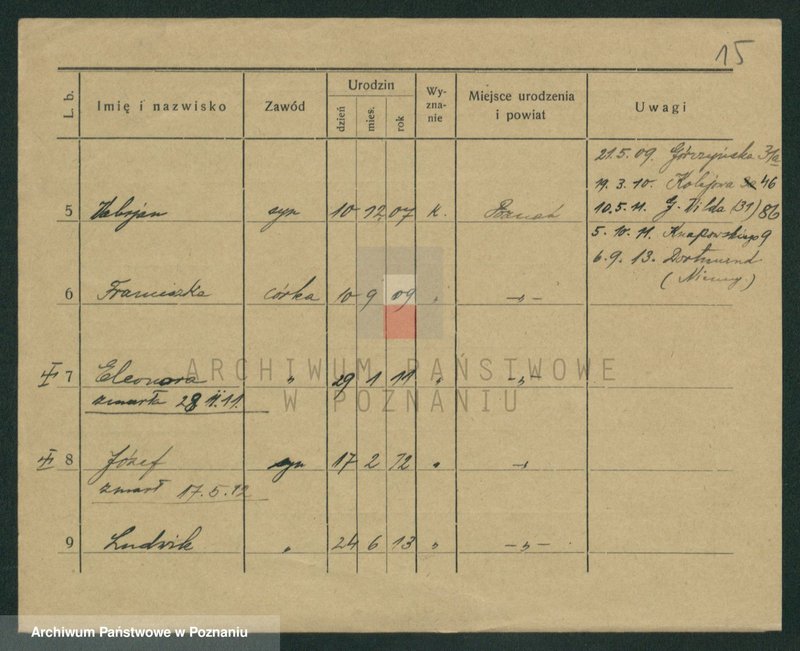 15
L. b. Imię i nazwisko Zawód Urodzin dzień mies. rok Wy-zna-nie Miejsce urodzenia i powiat Uwagi
21.5.09. Górczyńska 31a
19.3.10. Kolejowa 46
10.5.11. G. Wilda (31) 86
5 syn 10 12 07 K. Poznań
5.10.11. Knapowskiego 9
6.9.13. Dortmund
(Niemcy)
6 Franciszka córka 10 9 09 " -"-
7 Eleonora " 29 1 11 " -"-
zmarła 28 II.11.
8 Józef syn 17 2 12 " -"-
zmarł 17.5.12
9 Ludwik " 24 6 13 " -"-
ARCHIWUM PAŃSTWOWE
W POZNANIU
Archiwum Państwowe w Poznaniu